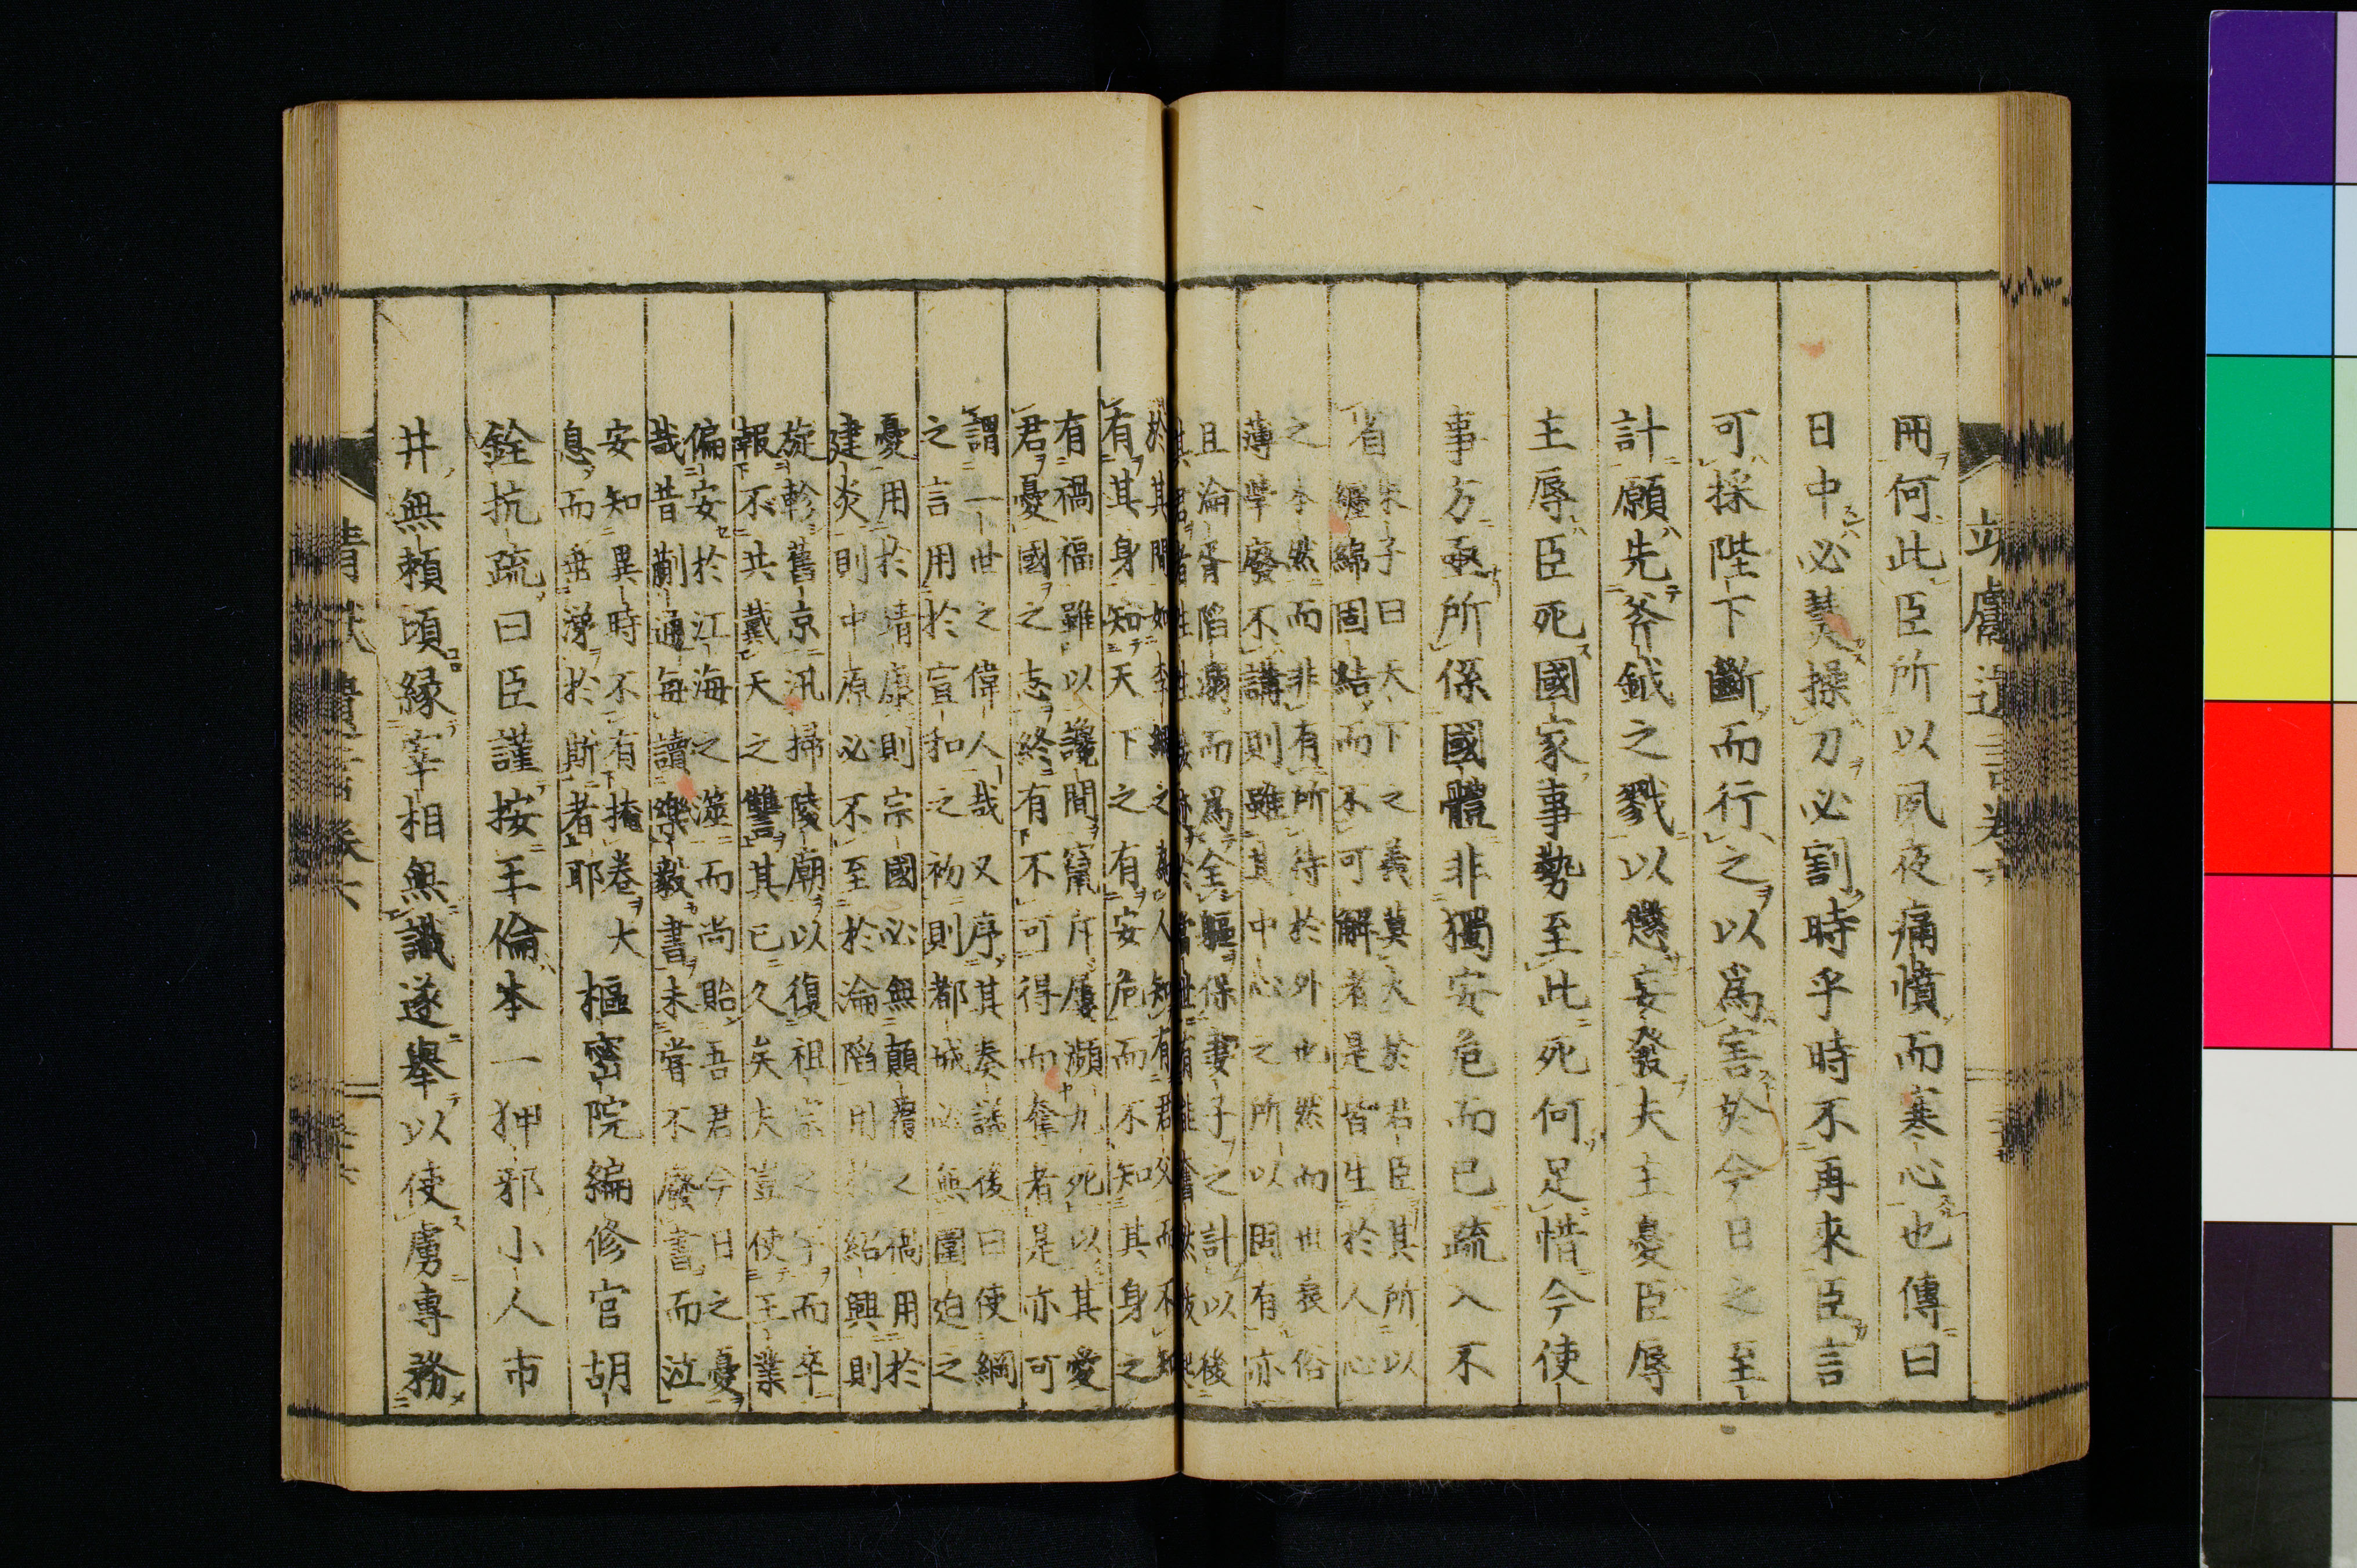 冊何此臣所以夙夜痛憤而寒心也傳曰
日中必熭操刀必割時乎時不再來臣言
可採陛下斷而行之以爲害於今日之至
計願先斧鉞之戮以懲妄發夫主憂臣辱
主辱臣死國家事勢至此死何足惜今使
事方亟所係國體非獨安危而已疏入不
省
朱子曰天下之義莫大於君臣其所以
纏綿固結而不可解者是皆生於人心
之本然而非有所待於外也然而世衰俗
薄學廢不講則雖其中心之所以固有亦
且淪胥陷溺而爲全軀保妻子之計以後
其君者
於其間如李綱之爲人知有君父而不知
有其身知天下之有安危而不知其身之
有禍福雖以讒間竄斥屢瀕九死以其愛
君憂國之志終有不可得而奪者是亦可
謂一世之偉人哉又序其奏議後曰使綱
之言用於宣和之初則都城必無圍迫之
憂用於靖康則宗國必無顛覆之禍用於
建炎則中原必不至於淪陷用於紹興則
旋軫舊京汛掃陵廟以復祖宗之宇而卒
報不共戴天之讐其已久矣夫豈使王業
偏安於江海之澨而尚貽吾君今日之憂
哉昔蒯通毎讀樂毅書未嘗不廢書而泣
安知異時不有掩卷大
息而垂涕於斯者耶
樞密院編修官胡
銓抗疏曰臣謹按王倫本一狎邪小人市
井無賴頃縁宰相無識遂擧以使虜專務